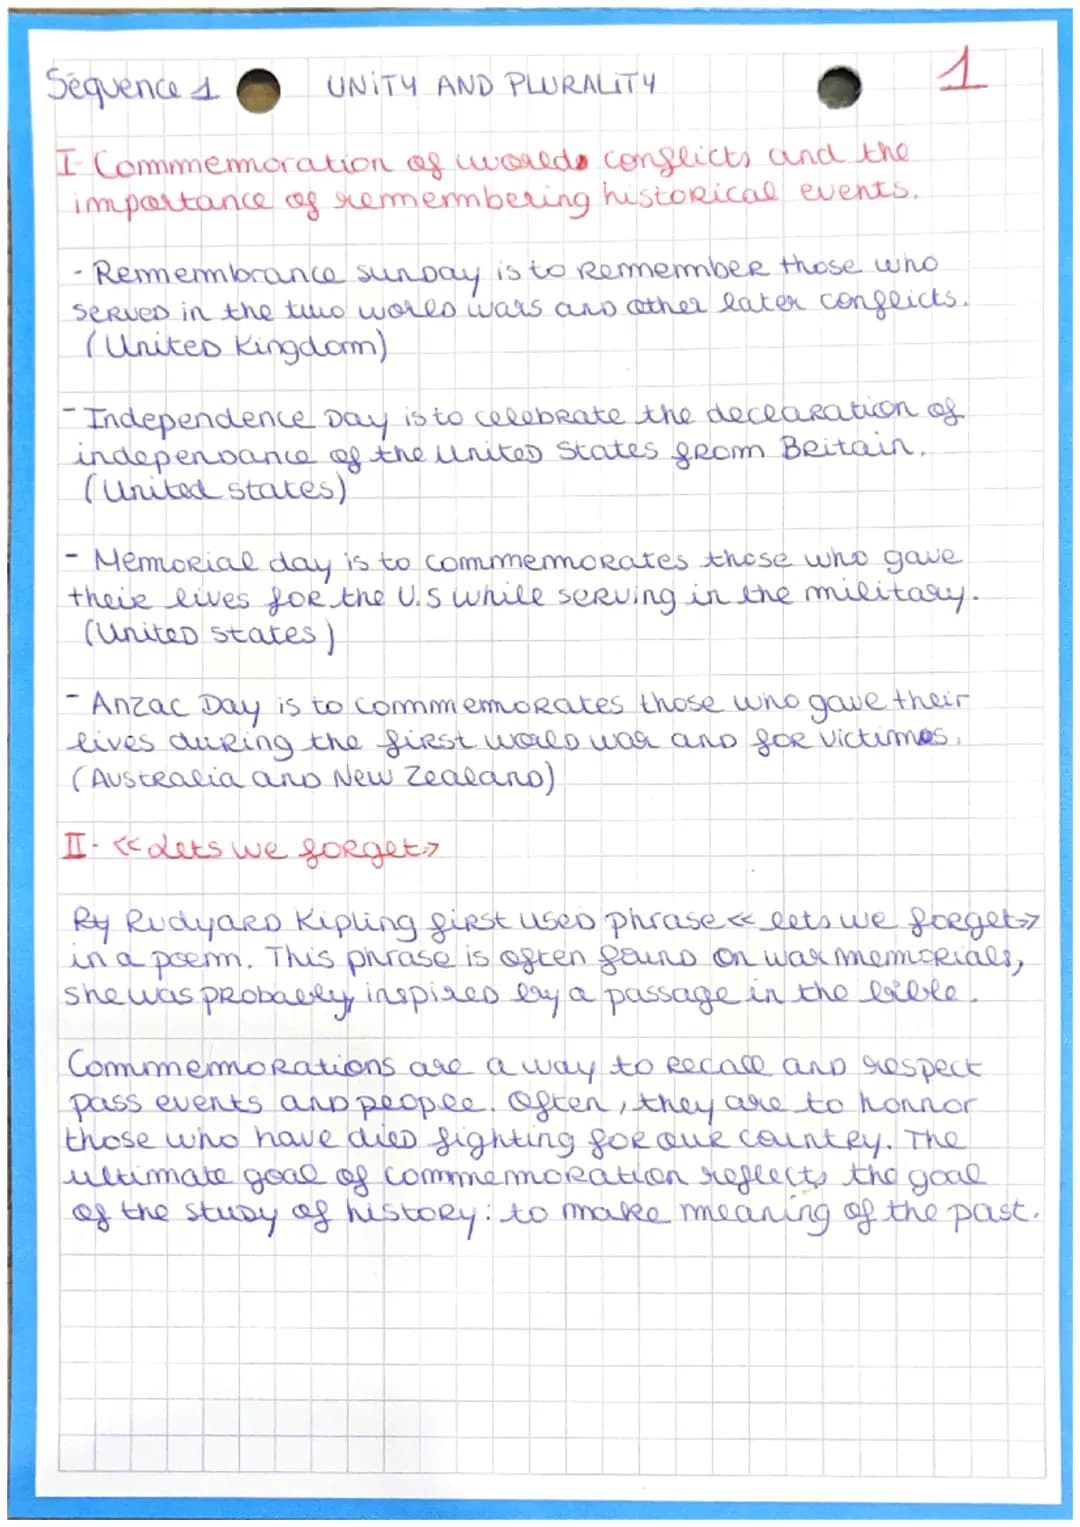 Séquence 1 UNITY AND PLURALITY 1
I- Commemoration of world conflicts and the
importance of remembering historical events.
- Remembrance sunday is to remember those who
served in the two world wars and other later conflicts.
(United Kingdom)
- Independence Day is to celebrate the declaration of
independance of the United States from Britain.
(United states)
- Memorial day is to commemorates those who gave
their lives for the U.S while serving in the military.
(United states)
- Anzac Day is to commemorates those who gave their
lives during the first world war and for victimes.
(Australia and New Zealand)
II- << Lets we forget>>
Ry Rudyard Kipling first used phrase << lets we forget>>
in a poem. This phrase is often found on war memorials,
she was probably inspired by a passage in the bible.
Commemorations are a way to recall and respect
pass events and people. Often, they are to honnor
those who have died fighting for our country. The
ultimate goal of commemoration reflects the goal
of the study of history: to make meaning of the past.